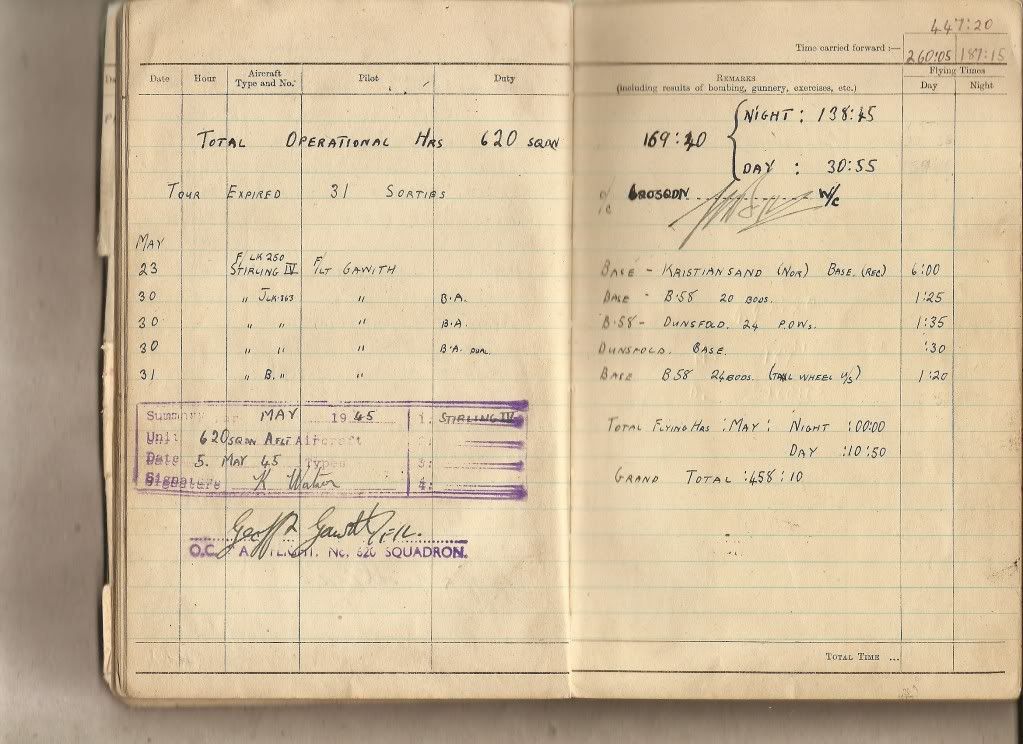 447:20
Time carried forward :— 260:05 187:15
Date Hour Aircraft Type and No. Pilot Duty REMARKS (including results of bombing, gunnery, exercises, etc.) Flying Times Day Night
TOTAL OPERATIONAL HRS 620 SQDN 169:40 { NIGHT : 138:45
DAY : 30:55
TOUR EXPIRED 31 SORTIES
o/c 620SQDN W/C
MAY
23 F/ LK 250 STIRLING IV F/LT GAWITH BASE - KRISTIANSAND (NOR) BASE. (REC) 6:00
30 " J LK·363 " B.A. BASE - B·58 20 BODS. 1:25
30 " " " B.A. B·58 - DUNSFOLD. 24 P.O.W.s. 1:35
30 " " " B.A. DUAL. DUNSFOLD. BASE. :30
31 " B. " " BASE B58 24 BODS. (TAIL WHEEL U/S) 1:20
Summary for MAY 1945 1. STIRLING IV
Unit 620 SQDN A FLT Aircraft 2.
Date 5. MAY 45 Types 3:
Signature K Watson 4:
TOTAL FLYING HRS : MAY : NIGHT :00:00
DAY :10:50
GRAND TOTAL :458:10
Geoff R Gawith F/L.
O.C. A. FLIGHT. No. 620 SQUADRON.
TOTAL TIME ...